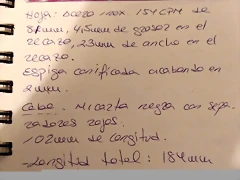 Hoja: acero inox 154CPM de
81mm, 4,5mm de grosor en el
recazo, 23mm de ancho en el
recazo.
Espiga conificada acabando en
2mm.
Cabo. Micarta negra con sepa-
radores rojos.
102mm de longitud.
-Longitud total: 184mm